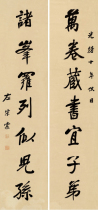 萬卷藏書宜子弟
光緒十年秋日
諸峯羅列似兒孫
左宗棠